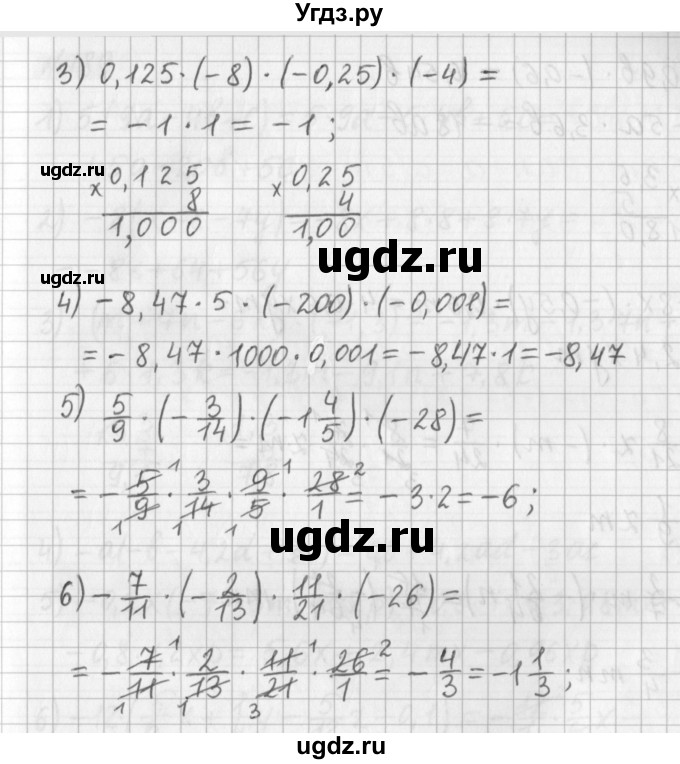 Угдз.ру
3) 0,125 · (−8) · (−0,25) · (−4) =
= −1 · 1 = −1;
ugdz.ru
× 0,125 × 0,25
8 4
1,000 1,00
ugdz.ru
ugdz.ru
4) −8,47 · 5 · (−200) · (−0,001) =
= −8,47 · 1000 · 0,001 = −8,47 · 1 = −8,47
5) 5/9 · (−3/14) · (−1 4/5) · (−28) =
= −5/9 · 3/14 · 9/5 · 28/1 = −3 · 2 = −6;
ugdz.ru
6) −7/11 · (−2/13) · 11/21 · (−26) =
= −7/11 · 2/13 · 11/21 · 26/1 = −4/3 = −1 1/3;
ugdz.ru